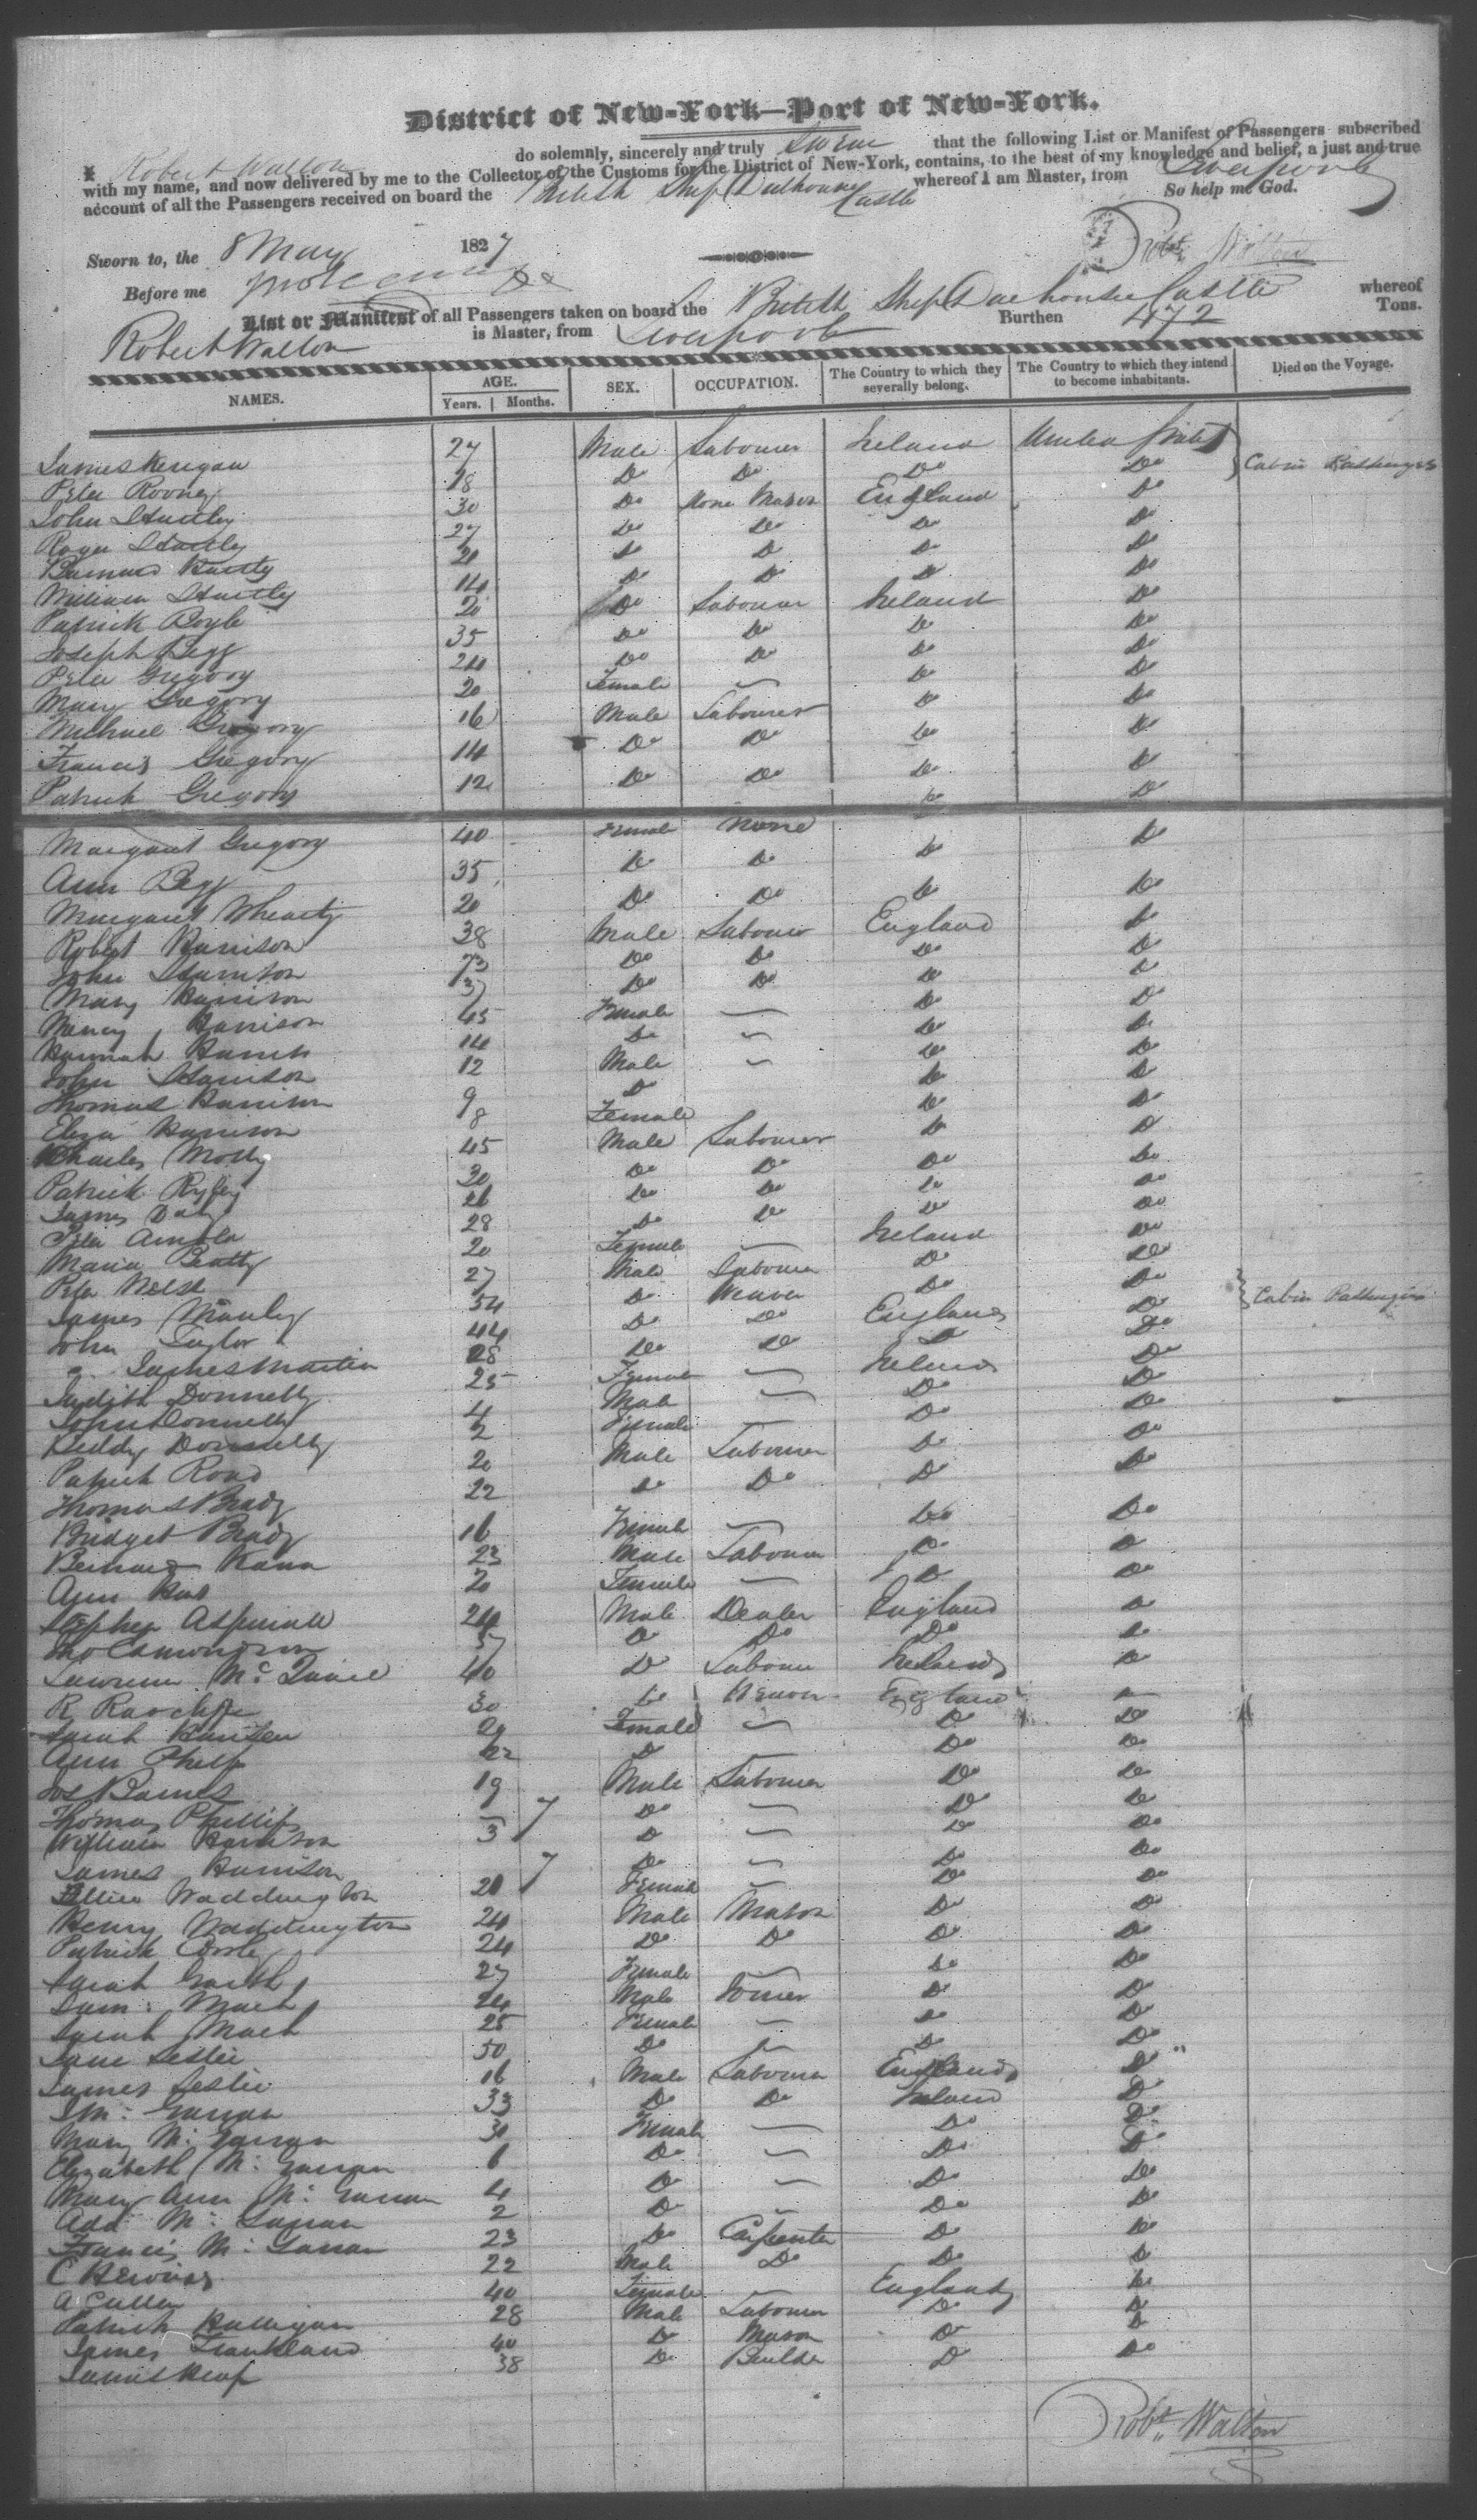 District of New-York—Port of New-York.
I Robert Walton do solemnly, sincerely and truly Swear that the following List or Manifest of Passengers subscribed
with my name, and now delivered by me to the Collector of the Customs for the District of New-York, contains, to the best of my knowledge and belief, a just and true
account of all the Passengers received on board the British Ship Dalhousie Castle whereof I am Master, from Liverpool
So help me God.
Sworn to, the 8 May 1827
Robt Walton
Before me
List or Manifest of all Passengers taken on board the British Ship Dalhousie Castle whereof
Robert Walton is Master, from Liverpool Burthen 472 Tons.
NAMES. AGE. Years. Months. SEX. OCCUPATION. The Country to which they severally belong. The Country to which they intend to become inhabitants. Died on the Voyage.
James Kerigan 27 Male Labourer Ireland United States
Peter Rooney 18 Do Do Do Do Cabin Passengers
John Hartley 30 Do Stone Mason England Do
Roger Hartley 27 Do Do Do Do
Bernard Hartly 20 Do Do Do Do
William Hartley 14 Do Do Do Do
Patrick Boyle 20 Do Labourer Ireland Do
Joseph Begg 35 Do Do Do Do
Peter Gregory 24 Do Do Do Do
Mary Gregory 20 Female — Do Do
Michael Gregory 16 Male Labourer Do Do
Francis Gregory 14 Do Do Do Do
Patrick Gregory 12 Do Do Do Do
Margaret Gregory 40 Female None Do Do
Ann Begg 35 Do Do Do Do
Margaret 20 Do Do Do Do
Robert Harrison 38 Male Labourer England Do
John Harrison 73 Do Do Do Do
Mary Harrison 37 Do Do Do Do
Nancy Harrison 45 Female — Do Do
Hannah 14 Do — Do Do
John Harrison 12 Male — Do Do
Thomas Harrison 9 Do Do Do
Eliza Harrison 8 Female Do Do
Charles 45 Male Labourer Do Do
Patrick 30 Do Do Do Do
James 26 Do Do Do Do
Peter Arnold 28 Do Do Do Do
Maria Beatty 20 Female — Ireland Do
Peter Welsh 27 Male Labourer Do Do
James Manley 54 Do Weaver Do Do Cabin Passengers
John Taylor 44 Do Do England Do
James Martin 28 Do Do Do Do
Judith Donnelly 25 Female — Ireland Do
John Donnelly 4 Male — Do Do
Biddy Donnelly 2 Female Do Do
Patrick 20 Male Labourer Do Do
Thomas Brady 22 Do Do Do Do
Bridget Brady 16 Female — Do Do
Bernard 23 Male Labourer Do Do
Ann 20 Female — Do Do
Stephen Aspinall 24 Male Dealer England Do
Thos Edmondson 57 Do Do Do Do
Lawrence Mc 40 Do Labourer Ireland Do
R Radcliffe 30 Do Weaver England Do
Sarah 29 Female — Do Do
Ann Philip 22 Do Do Do
Jos Barnes 19 Male Labourer Do Do
Thomas Phillips — 7 Do — Do Do
William Harrison 3 Do — Do Do
James Harrison 7 Do — Do Do
Waddington 20 Female — Do Do
Henry Waddington 24 Male Mason Do Do
Patrick 24 Do Do Do Do
Sarah 27 Female — Do Do
Sam: Mach 24 Male Joiner Do Do
Sarah Mach 25 Female — Do Do
Jane Leslie 50 Do — Do Do
James Leslie 16 Male Labourer England Do
33 Do Do Ireland Do
Mary Mc: Garran 30 Female — Do Do
Elizabeth Mc: Garran 6 Do — Do Do
Mary Ann Mc: Garran 4 Do — Do Do
Mc: Garran 2 Do — Do Do
Francis Mc: Garran 23 Do Carpenter Do Do
C 22 Male Do Do Do
A Cullen 40 Female — England Do
Patrick Halligan 28 Male Labourer Do Do
James Frankland 40 Do Mason Do Do
James Heap 38 Do Builder Do Do
Robt Walton